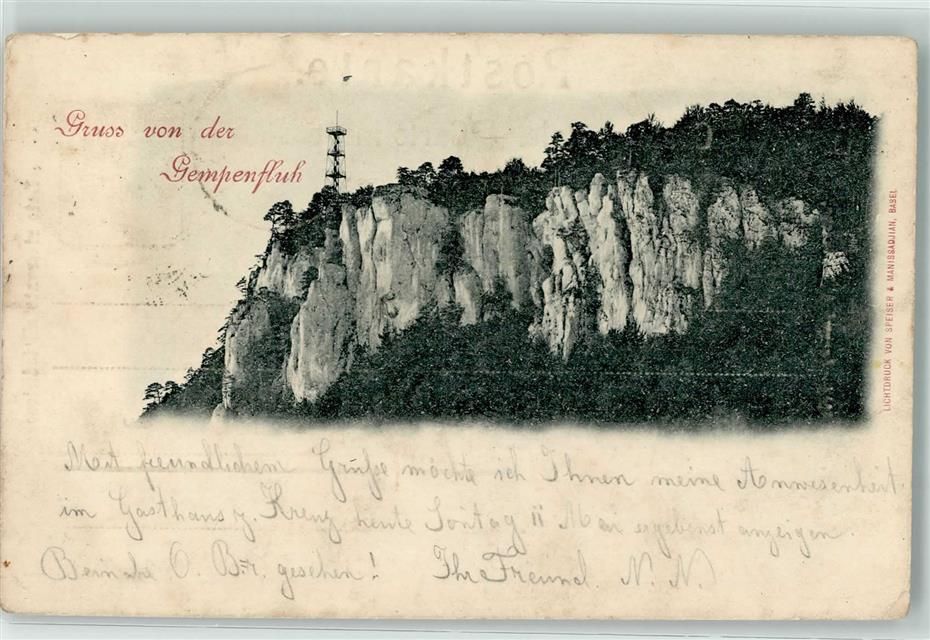 Gruss von der
Gempenfluh
LICHTDRUCK VON SPEISER & MANISSADJIAN, BASEL
Mit freundlichem Grüße möchte ich Ihnen meine Anwesenheit
im Gasthaus z. Kreuz heute Sontag 11 Mai ergebenst anzeigen.
O. Br. gesehen! Ihr Freund N. N.
Postkarte.